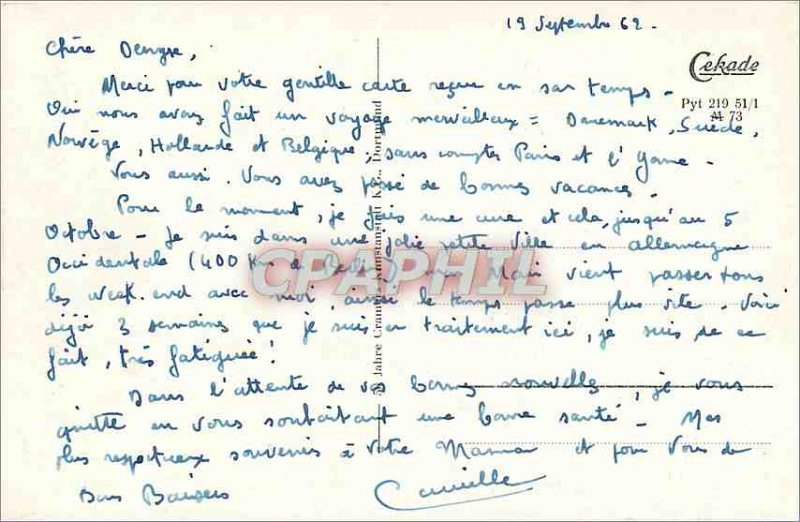 19 Septembre 62.
Chère Denyse,
Cekade
Merci pour votre gentille carte reçue en son temps.
Pyt 219 51/1
Oui nous avons fait un voyage merveilleux = Danemark, Suède,
M 73
Norvège, Hollande et Belgique, sans compter Paris et l'Yonne.
Vous aussi. Vous avez passé de bonnes vacances.
Pour le moment, je fais une cure et cela, jusqu'au 5
Octobre - Je suis dans une jolie petite Ville en allemagne
Occidentale (400 Km de Berlin) mon Mari vient passer tous
les week-end avec moi, ainsi le temps passe plus vite. Voici
déjà 3 semaines que je suis en traitement ici, je suis de ce
fait, très fatiguée!
Dans l'attente de vos bonnes nouvelles, je vous
quitte en vous souhaitant une bonne santé. Mes
plus respectueux souvenirs à Votre Maman et pour Vous de
Bons Baisers Camille
Jahre Cramers Kunstanstalt K.G., Dortmund
CPAPHIL